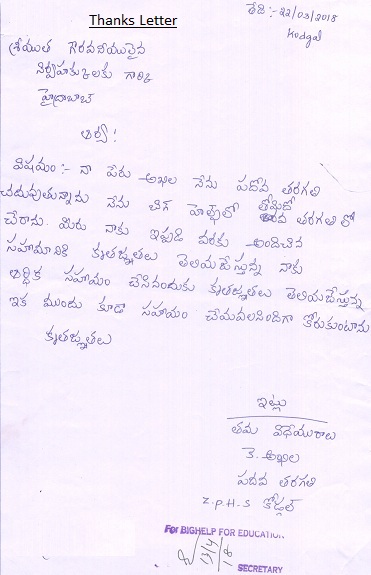 Thanks Letter
తేది :- 22/03/2018
Kodgal
శ్రీయుత గౌరవనీయులైన
నిర్వాహక్కులకు గారికి
హైద్రాబాద్
ఆర్య!
విషయం :- నా పేరు అఖిల నేను పదోవ తరగతి
చదువుతున్నాను నేను బిగ్ హెల్ప్‌లో తరగతి లో
చేరాను. మీరు నాకు ఇప్పుడి వరకు అందించిన
సహాయానికి కృతజ్ఞతలు తెలియచేస్తున్న నాకు
ఆర్థిక సహాయం చేసినందుకు కృతజ్ఞతలు తెలియచేస్తున్న
ఇక ముందు కూడా సహాయం చేయవలసిందిగా కోరుకుంటాను
కృతజ్ఞతలు
ఇట్లు
తమ విధేయురాలు
కె. అఖిల
పదవ తరగతి
Z.P.H.S కోడ్గల్
For BIGHELP FOR EDUCATION
SECRETARY